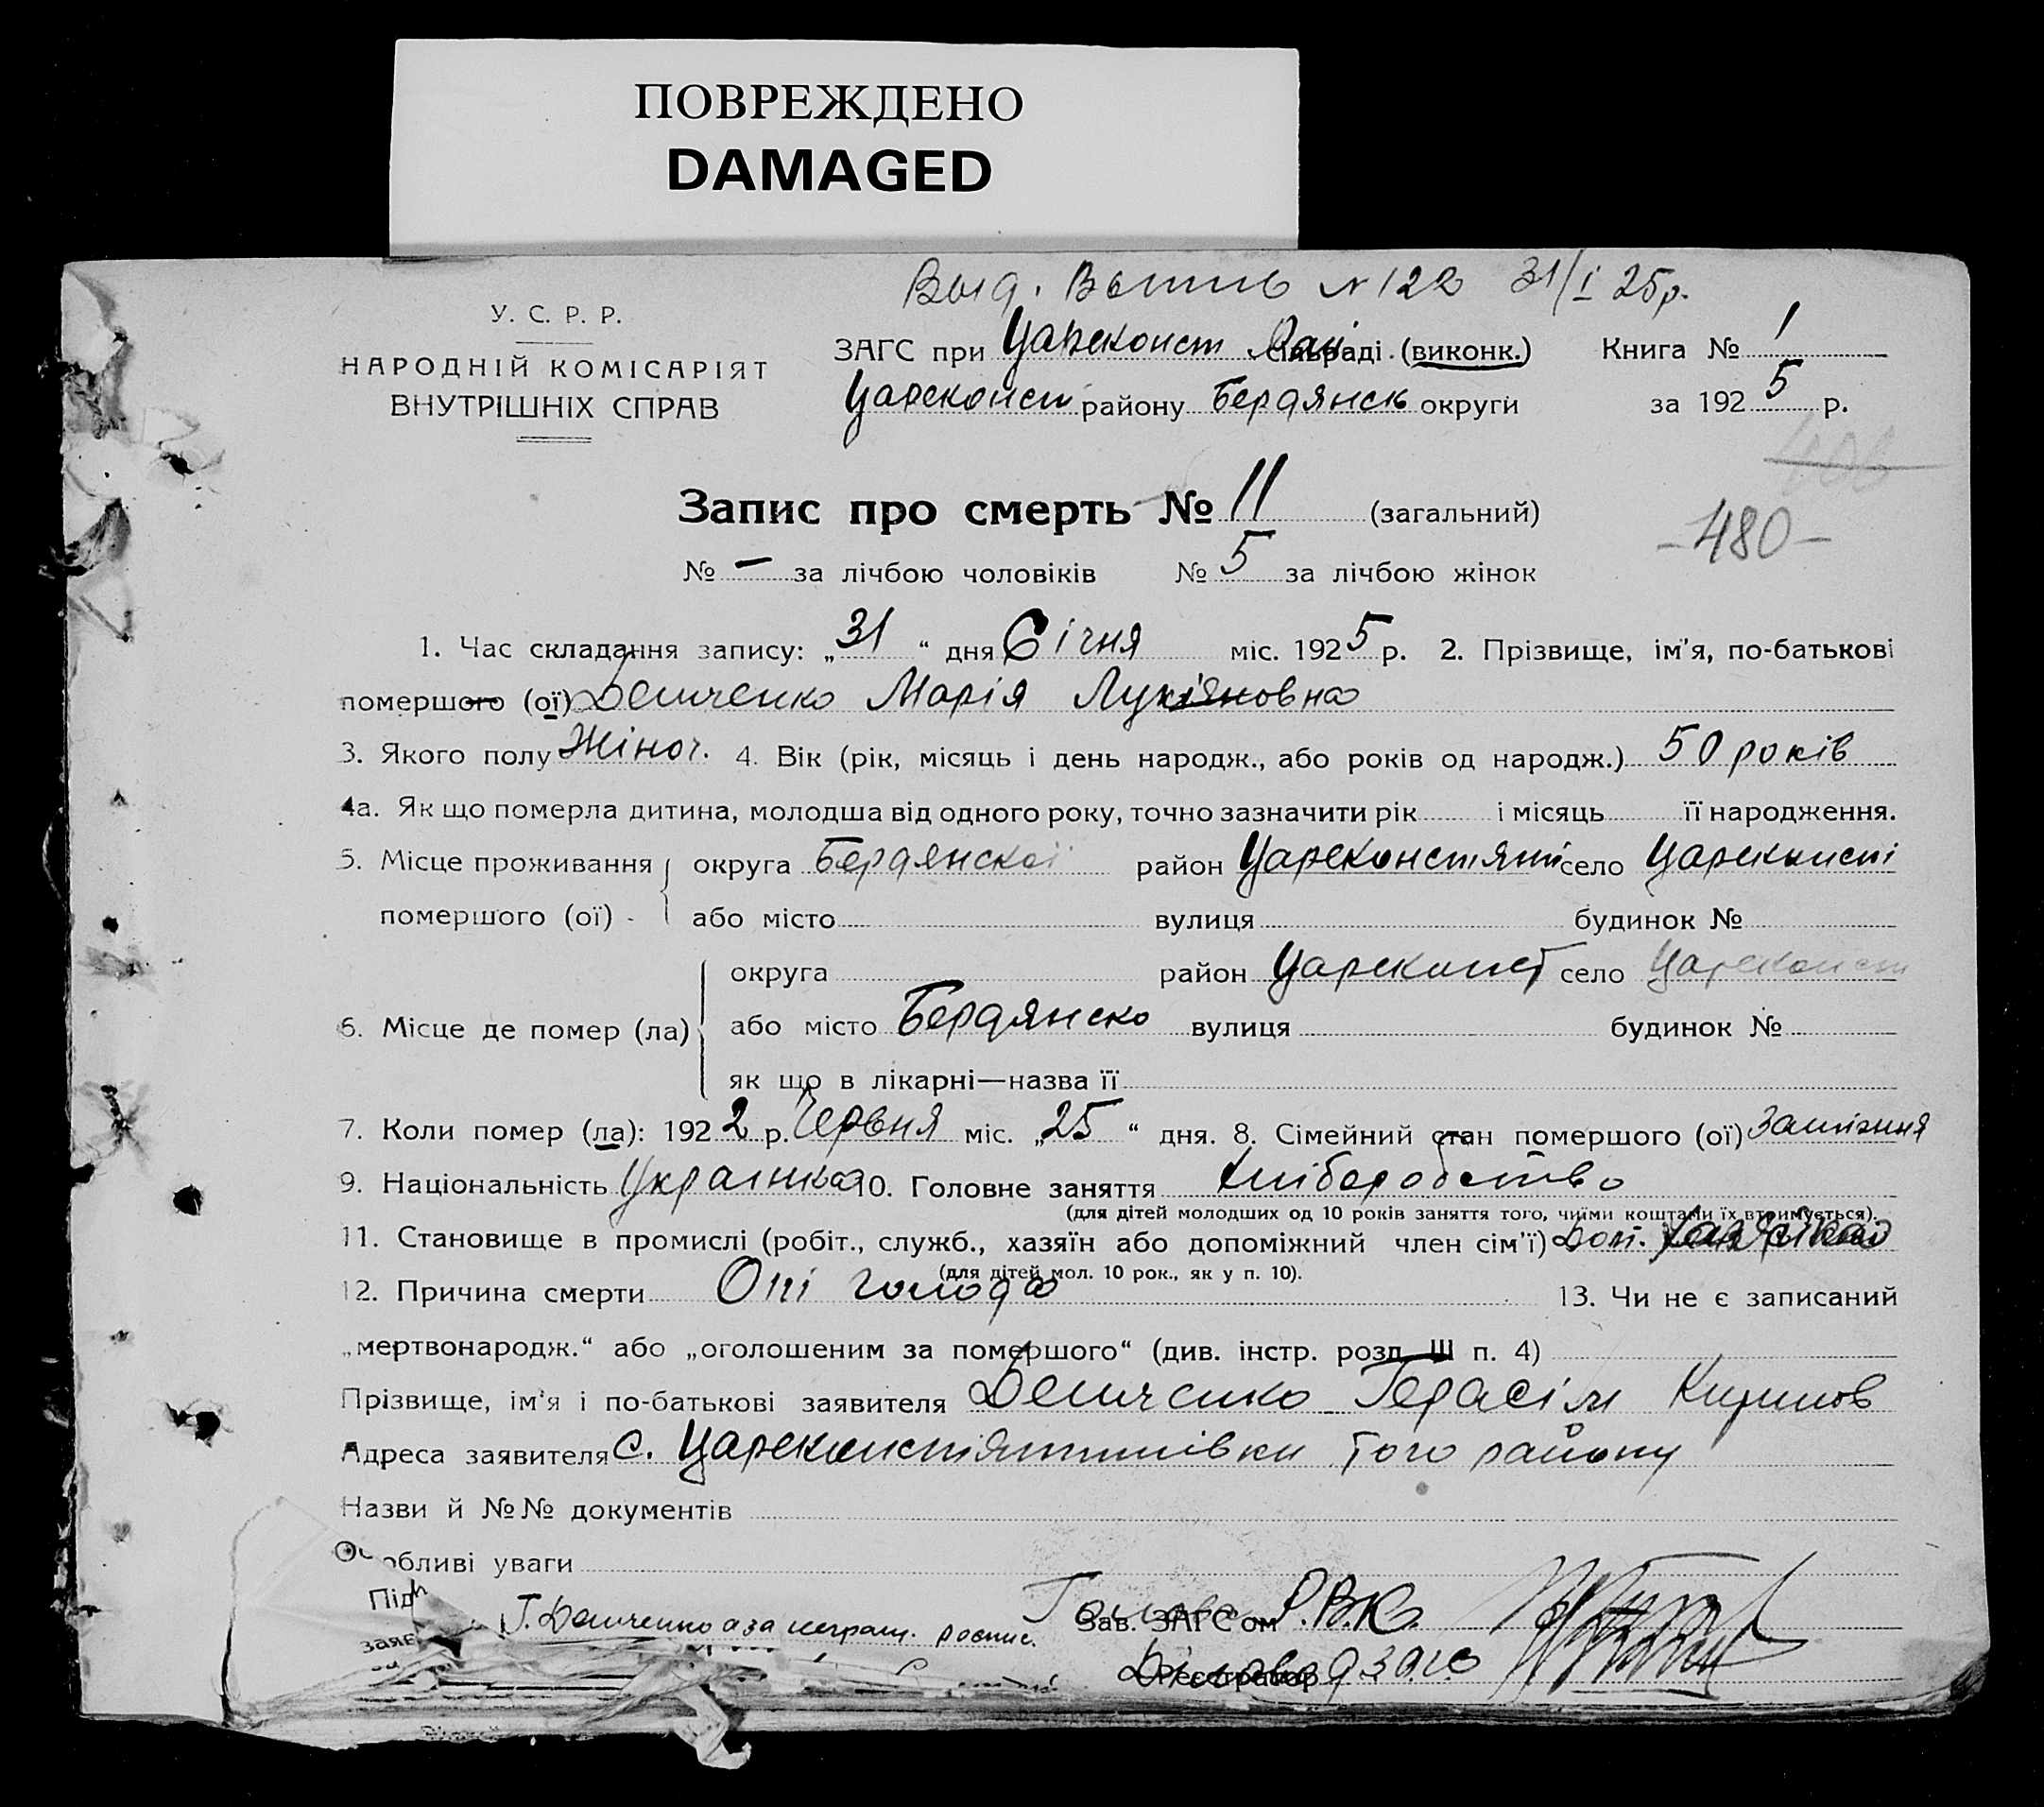 ПОВРЕЖДЕНО
DAMAGED
Выд. Выпись № 122 31/I 25р.
У. С. Р. Р.
НАРОДНІЙ КОМІСАРІЯТ
ВНУТРІШНІХ СПРАВ
ЗАГС при Цареконст Рай сільраді (виконк.) Книга № 1
Цареконст району Бердянсь округи за 1925 р.
Запис про смерть № 11 (загальний)
-480-
№ — за лічбою чоловіків № 5 за лічбою жінок
1. Час складання запису: „31“ дня Січня міс. 1925 р. 2. Прізвище, ім'я, по-батькові
помершого (ої) Демченко Марія Лукіяновна
3. Якого полу Жіноч. 4. Вік (рік, місяць і день народж., або років од народж.) 50 років
4а. Як що померла дитина, молодша від одного року, точно зазначити рік і місяць її народження.
5. Місце проживання округа Бердянскої район Цареконстянт село Цареконст
помершого (ої) - або місто вулиця будинок №
округа район Цареконст село Цареконст
6. Місце де помер (ла) або місто Бердянско вулиця будинок №
як що в лікарні—назва її
7. Коли помер (ла): 1922 р. Червня міс. „25“ дня. 8. Сімейний стан помершого (ої) Заміжня
9. Національність Українка 10. Головне заняття Хліборобство
(для дітей молодших од 10 років заняття того, чиїми коштами їх втримується).
11. Становище в промислі (робіт., служб., хазяїн або допоміжний член сім'ї) Дом.
(для дітей мол. 10 рок., як у п. 10).
12. Причина смерти Оті голода 13. Чи не є записаний
„мертвонародж.“ або „оголошеним за помершого“ (див. інстр. розд. III п. 4)
Прізвище, ім'я і по-батькові заявителя Демченко Герасім Кирилов
Адреса заявителя с. Цареконстянтинівки того району
Назви й №№ документів
Особливі уваги
Під
заяв Г. Демченко а за неграм. роспис. Голова Зав. ЗАГС'ом Р.В.К.
Реєстратор Діловод загс